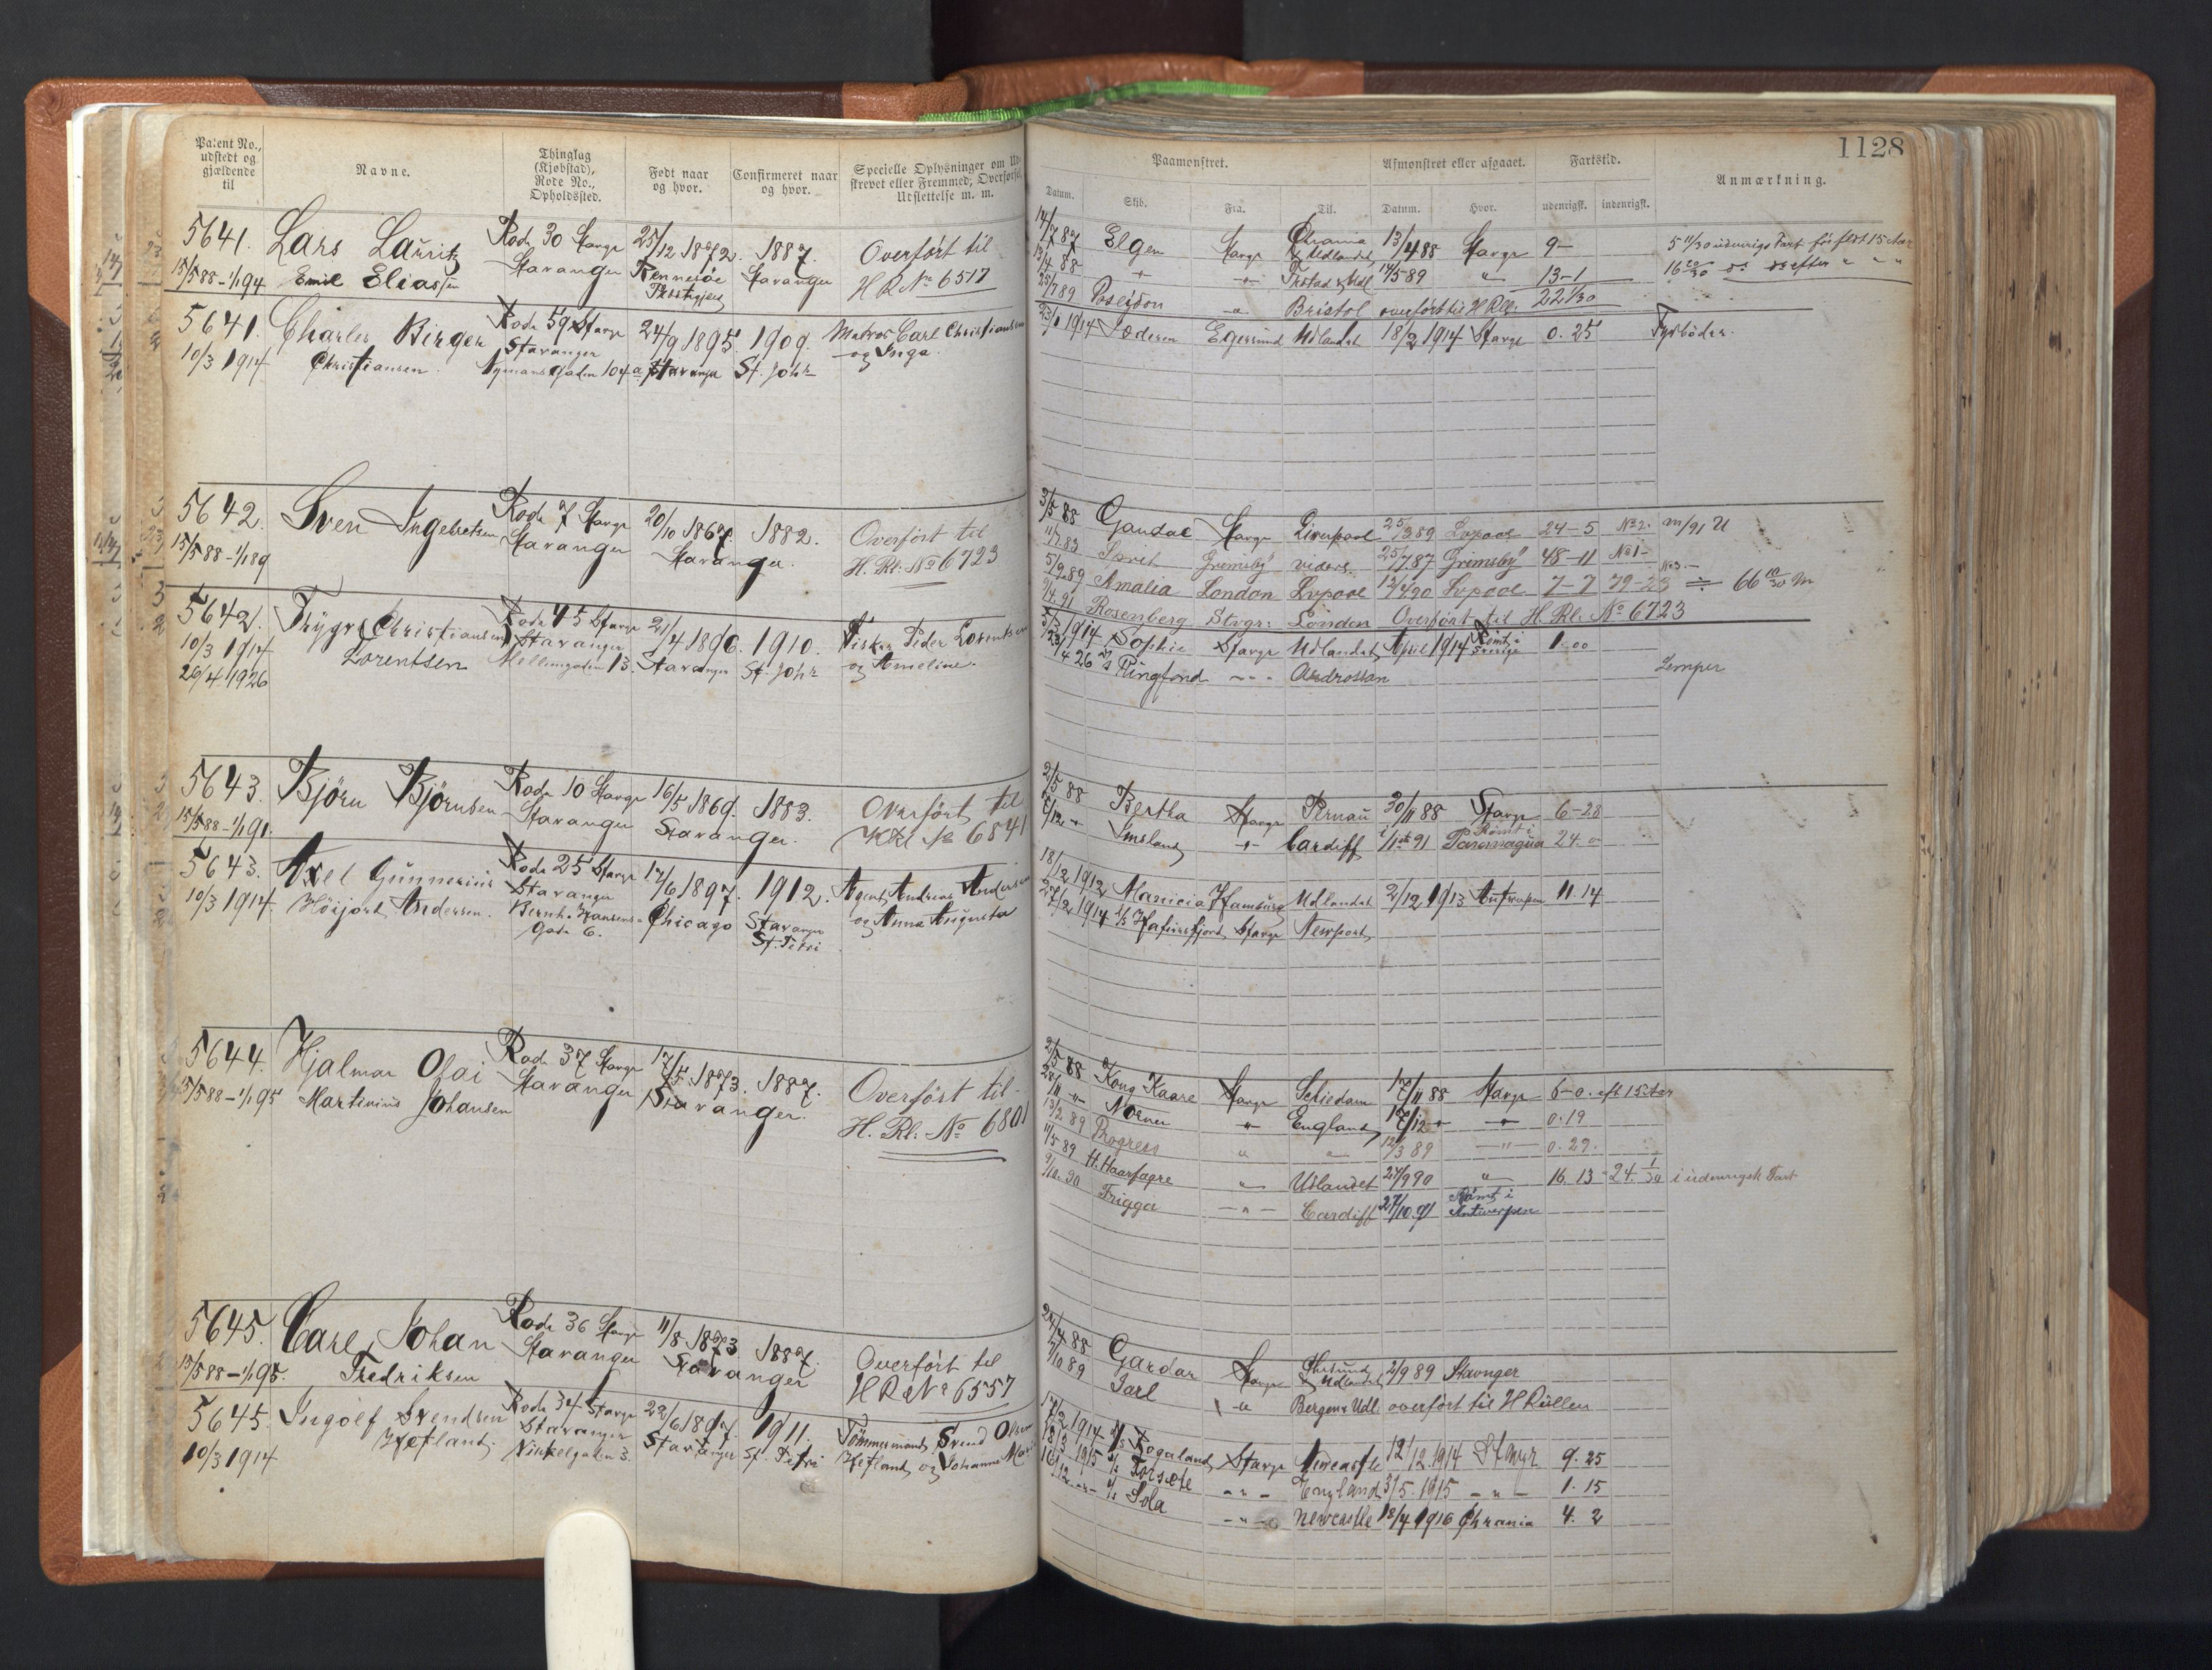 Patent No., udstedt og gjældende til
Navne.
Thinglag (Kjøbstad), Rode No., Opholdssted.
Født naar og hvor.
Confirmeret naar og hvor.
Specielle Oplysninger om
Udslettelse m. m.
5641. Lars Lauritz Rode 30 Stavgr 25/12 1872. 1887. Overført til
15/5 88 - 1/1 94 Emil Eliassen Stavanger Rennesøe Stavanger H R No 6517
5641. Charles Birger Rode 59 Stavgr 24/9 1895. 1909. Matros Carl Christiansen
10/3 1914 Christiansen. Stavanger Stavanger St. Joh. og Inga.
Nymansgaden 104a
5642. Sven Ingebretsen Rode 7 Stavgr 20/10 1867. 1882. Overført til
15/5 88 - 1/1 89 Stavanger Stavanger. H. Rl: No 6723
5642. Trygve Christiansen Rode 45 Stavgr 21/4 1896. 1910. Fisker Peder Lorentsen
10/3 1914 Lorentsen Stavanger Stavanger St. Joh. og Ameline.
26/4 1926 Møllegaden 13.
5643. Bjørn Bjørnsen Rode 10 Stavgr 16/5 1869. 1883. Overført til
15/5 88 - 1/1 91. Stavanger Stavanger. HRl No 6841
5643. Axel Gunnerius Rode 25 Stavgr 17/6 1897. 1912. Agent Andreas Andersen
10/3 1914. Høijord Andersen. Stavanger Chicago Stavanger og Anna Augusta
Bernh. Hansens Gade 6. St. Petri
5644. Hjalmar Olai Rode 37 Stavgr 17/5 1873. 1887. Overført til
15/5 88 - 1/1 95 Martinius Johansen Stavanger Stavanger. H. Rl: No 6801
5645. Carl Johan Rode 36 Stavgr 11/8 1873 1887. Overført til
15/5 88 - 1/1 95. Fredriksen Stavanger Stavanger H R No 6557
5645. Ingolf Svendsen Rode 34 Stavgr 22/6 1897. 1911. Tømmermand Svend Olsen
10/3 1914 Hetland. Stavanger Stavanger St. Petri Hetland og Johanne
Vinkelgaden 3.
1128
Paamønstret. Afmønstret eller afgaaet. Fartstid. Anmærkning.
Datum. Skib. Fra. Til. Datum. Hvor. udenrigsk. indenrigsk.
14/7 87 Elgen Stavgr Chrania & Udlandet 13/4 88 Stavgr 9-
13/4 88 " " Frstad & Udl 14/5 89 " 13-1
25/7 89 Poseidon " Bristol overført til H Rll. 22 1/30
23/1 1914 Soderen Egersund Udlandet 18/2 1914 Stavgr 0. 25 Fyrbøder.
3/5 88 Gandal Stavgr Liverpool 25/3 89 Lvpool 24-5 No 2. m/91 U
11/7 83 Spret Grimsby viders. 25/7 87 Grimsby 48-11 No 1-
5/9 89 Amalia London Lvpool 12/4 90 Lvpool 7-7 79-23 ÷ 66 10/30 M
9/4 91 Rosenberg Stvgr: London Overført til H. Rl: No 6723
5/3 1914 Sophie Stavgr Udlandet April 1914 Rømt i Sverige 1.00
23/4 26 Ringfond - - - Ardrossan Lemper
2/5 88 Bertha Stavgr Pernau 30/11 88 Stavgr 6-28
6/12 " Imsland " Cardiff 91 Rømt i 24. 0
18/12 1912 Manicia Hamburg Udlandet 2/12 1913 Antwerpen 11. 14
27/2 1914 S/s Hafursfjord Stavgr Newport
2/5 88 Kong Kaare Stavgr Schiedam 17/11 88 Stavgr 6-0. eft 15 Aar
28/11 " Norna " England 17/12 " " 0. 19
13/2 89 Progress " " 12/3 89 " 0. 29.
11/5 89 H. Haarfagre " Udlandet 24/9 90 " 16. 13 - 24. 1/30 i udenrigsk Fart
9/10. 90 Frigga - " - Cardiff 27/10. 91 Rømt i Antwerpen
24/4 88 Gardar Stavgr Chrsund & Udlandet 2/9 89 Stavnger
7/10 89 Jarl " Bergen & Udl. overført til H Rullen
17/2 1914 S/s Rogaland Stavgr Newcastle 12/12. 1914 Stavgr 9. 25
18/3 1915 S/s Torsæte - " - England 3/5. 1915 - " - 1. 15
16/12 " S/s Sola - " - Newcastle 18/4 1916 Chrania 4. 2